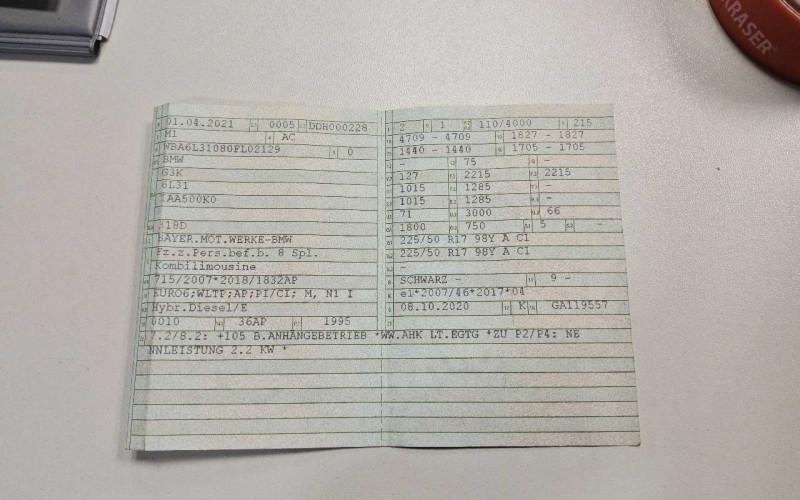 01.04.2021 0005 DDH000228
M1 AC
WBA6L31080FL02129 0
BMW
G3K
6L31
IAA500K0
318D
BAYER.MOT.WERKE-BMW
Fz.z.Pers.bef.b. 8 Spl.
Kombilimousine
715/2007*2018/1832AP
EURO6;WLTP;AP;PI/CI; M, N1 I
Hybr.Diesel/E
0010 36AP 1995
2 1 110/4000 215
4709 - 4709 1827 - 1827
1440 - 1440 1705 - 1705
- 75 -
127 2215 2215
1015 1285 -
1015 1285 -
71 3000 66
1800 750 5 -
225/50 R17 98Y A C1
225/50 R17 98Y A C1
-
SCHWARZ - 9 -
e1*2007/46*2017*04
08.10.2020 K GA119557
7.2/8.2: +105 B.ANHÄNGEBETRIEB *WW.AHK LT.EGTG *ZU P2/P4: NE
NNLEISTUNG 2.2 KW *